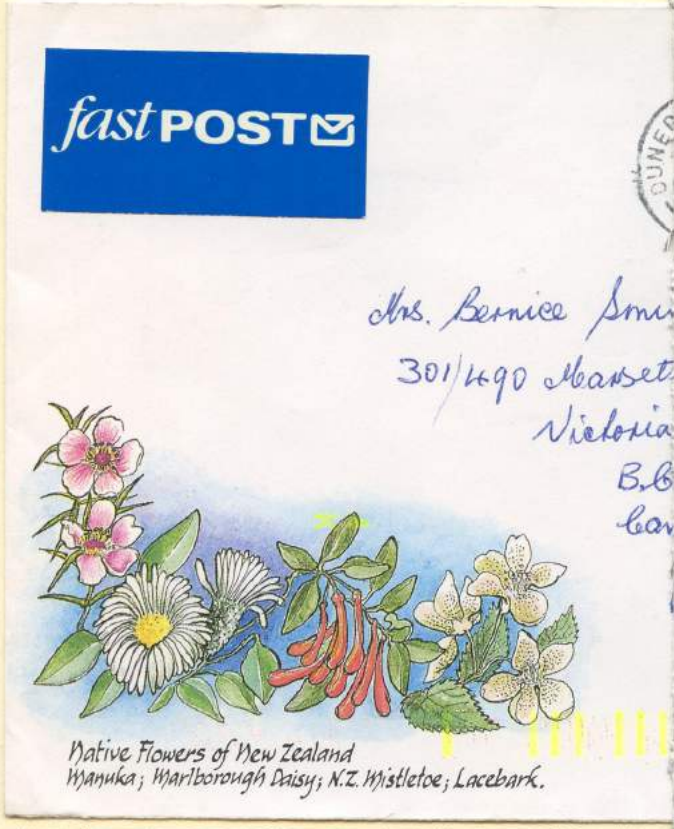 fastPOST
DUNED
Mrs. Bernice
301/490
Victoria
B.C
Can
Native Flowers of New Zealand
Manuka; Marlborough Daisy; N.Z. Mistletoe; Lacebark.